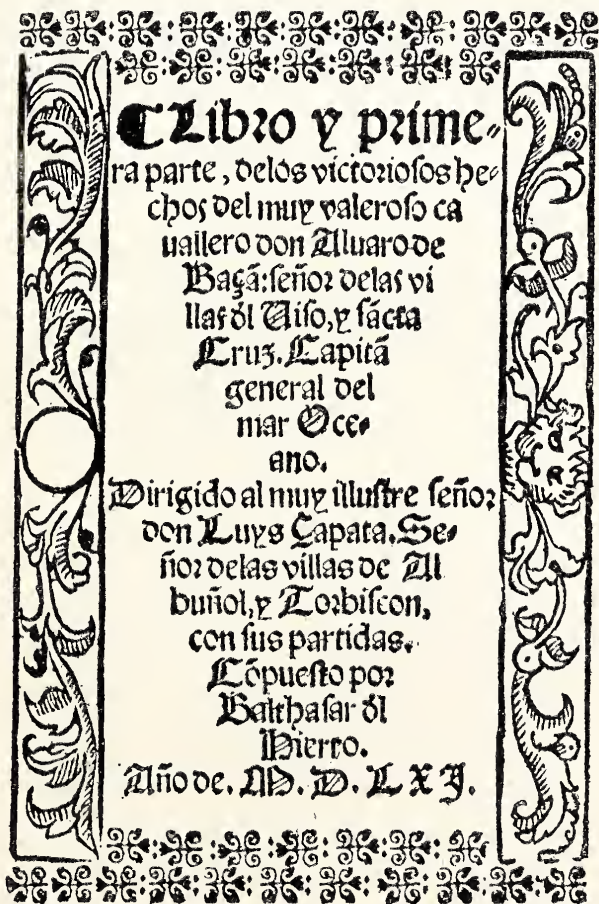 ¶Libro y prime-
ra parte, delos victoriosos he-
chos del muy valeroso ca
uallero don Aluaro de
Baçã: señor delas vi
llas ðl Uiso, y sãcta
Cruz. Capitã
general del
mar Oce-
ano.
Dirigido al muy illustre señor
don Luys Çapata. Se-
ñor delas villas de Al
buñol, y Torbiscon,
con sus partidas.
Cõpuesto por
Balthasar ðl
Hierro.
Año de. M. D. L X J.